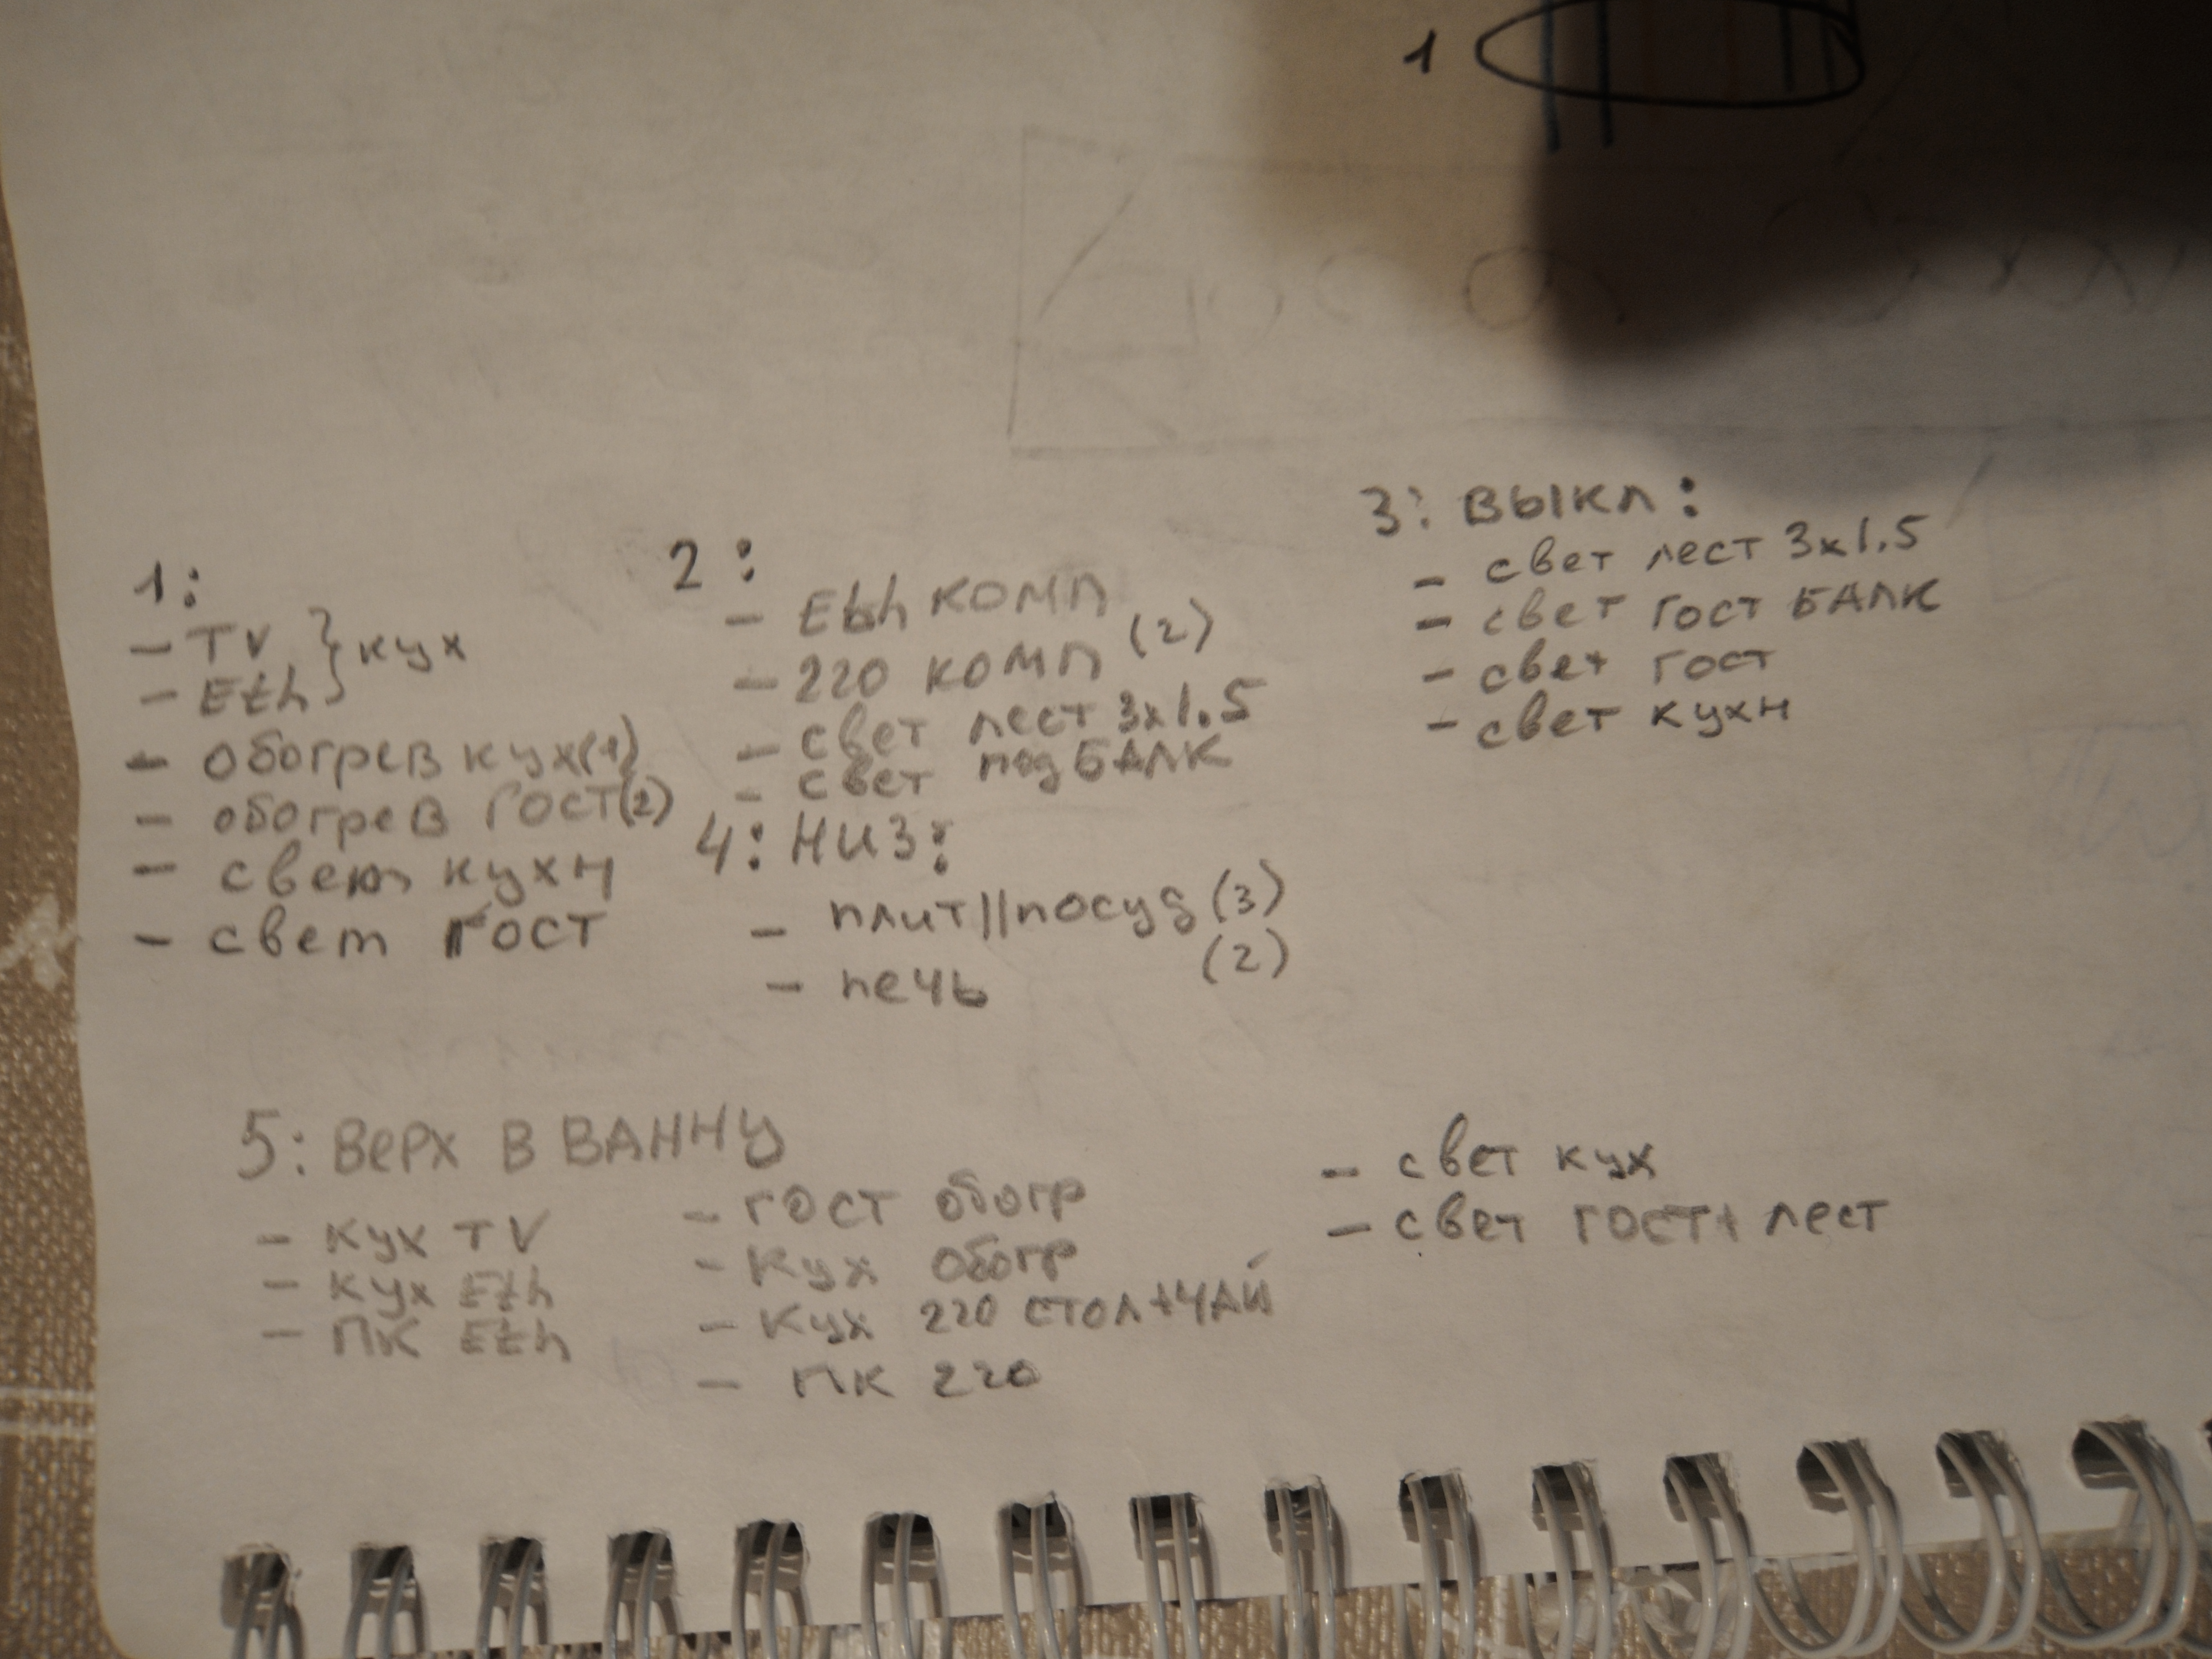 1
1:
- TV } кух
- Eth
- обогрев кух(1)
- обогрев ГОСТ(2)
- свет кухн
- свет ГОСТ
2:
- Eth КОМП
- 220 КОМП (2)
- свет лест 3x1.5
- свет под БАЛК
3: ВЫКЛ:
- свет лест 3x1.5
- свет гост БАЛК
- свет гост
- свет кухн
4: НИЗ:
- плит||посуд (3)
- печь (2)
5: ВЕРХ В ВАННУ
- кух TV
- кух Eth
- ПК Eth
- ГОСТ обогр
- Кух обогр
- Кух 220 СТОЛ+ЧАЙ
- ПК 220
- свет кух
- свет гост+ лест